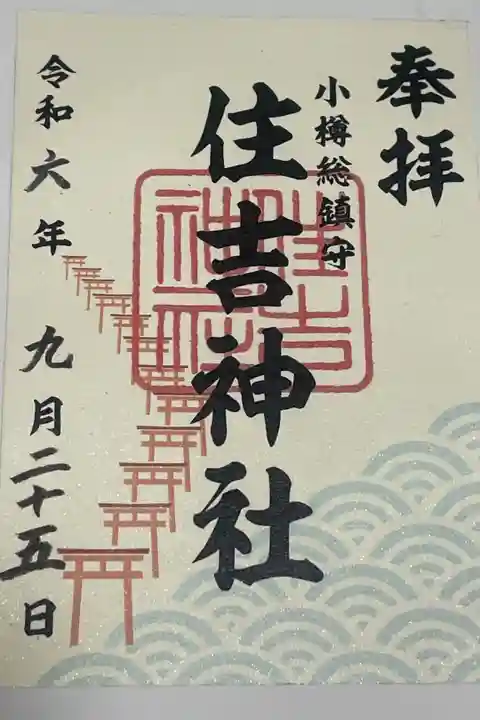 奉拝
小樽総鎮守
住吉神社
住吉
神社
令和六年 九月二十五日